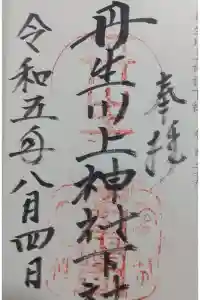 奉拝
丹生川上神社下社
令和五年八月四日